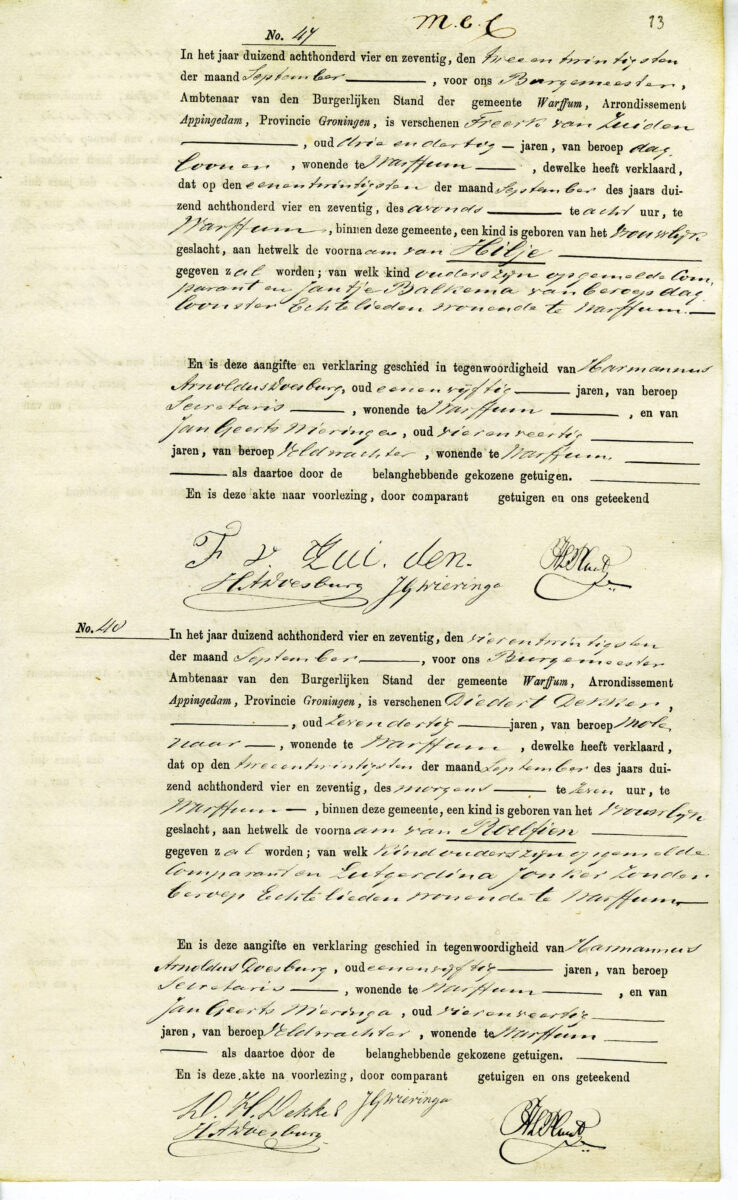 13
No. 47
In het jaar duizend achthonderd vier en zeventig, den tweeentwintigsten
der maand September, voor ons Burgemeester,
Ambtenaar van den Burgerlijken Stand der gemeente Warffum, Arrondissement
Appingedam, Provincie Groningen, is verschenen Freerk van Zuiden
, oud drie en dertig jaren, van beroep dag
looner, wonende te Warffum, dewelke heeft verklaard,
dat op den eenentwintigsten der maand September des jaars dui-
zend achthonderd vier en zeventig, des avonds te acht uur, te
Warffum, binnen deze gemeente, een kind is geboren van het vrouwlijk
geslacht, aan hetwelk de voornaam van Hilje
gegeven zal worden; van welk kind ouders zijn opgemelde Com-
parant en Jantje Balkema van beroep dag
loonster Echtelieden wonende te Warffum
En is deze aangifte en verklaring geschied in tegenwoordigheid van Harmannus
Arnoldus Doesburg, oud eenenvijftig jaren, van beroep
Secretaris, wonende te Warffum, en van
Jan Geerts Wieringa, oud vierenveertig
jaren, van beroep Veldwachter, wonende te Warffum.
als daartoe door de belanghebbende gekozene getuigen.
En is deze akte naar voorlezing, door comparant getuigen en ons geteekend
F v. Zui.den.
HADoesburg JGWieringa
No. 48
In het jaar duizend achthonderd vier en zeventig, den vierentwintigsten
der maand September, voor ons Burgemeester
Ambtenaar van den Burgerlijken Stand der gemeente Warffum, Arrondissement
Appingedam, Provincie Groningen, is verschenen Diedert Dekker,
, oud zevendertig jaren, van beroep mole
naar, wonende te Warffum, dewelke heeft verklaard,
dat op den tweeentwintigsten der maand September des jaars dui-
zend achthonderd vier en zeventig, des morgens te zeven uur, te
Warffum, binnen deze gemeente, een kind is geboren van het vrouwlijk
geslacht, aan hetwelk de voornaam van Roelfien
gegeven zal worden; van welk Kind ouders zijn opgemelde
Comparant en Lutgerdina Jonker zonder
beroep Echtelieden wonende te Warffum
En is deze aangifte en verklaring geschied in tegenwoordigheid van Harmannus
Arnoldus Doesburg, oud eenenvijftig jaren, van beroep
Secretaris, wonende te Warffum, en van
Jan Geerts Wieringa, oud vierenveertig
jaren, van beroep Veldwachter, wonende te Warffum
als daartoe door de belanghebbende gekozene getuigen.
En is deze akte na voorlezing, door comparant getuigen en ons geteekend
D. H. Dekker JGWieringa
HADoesburg